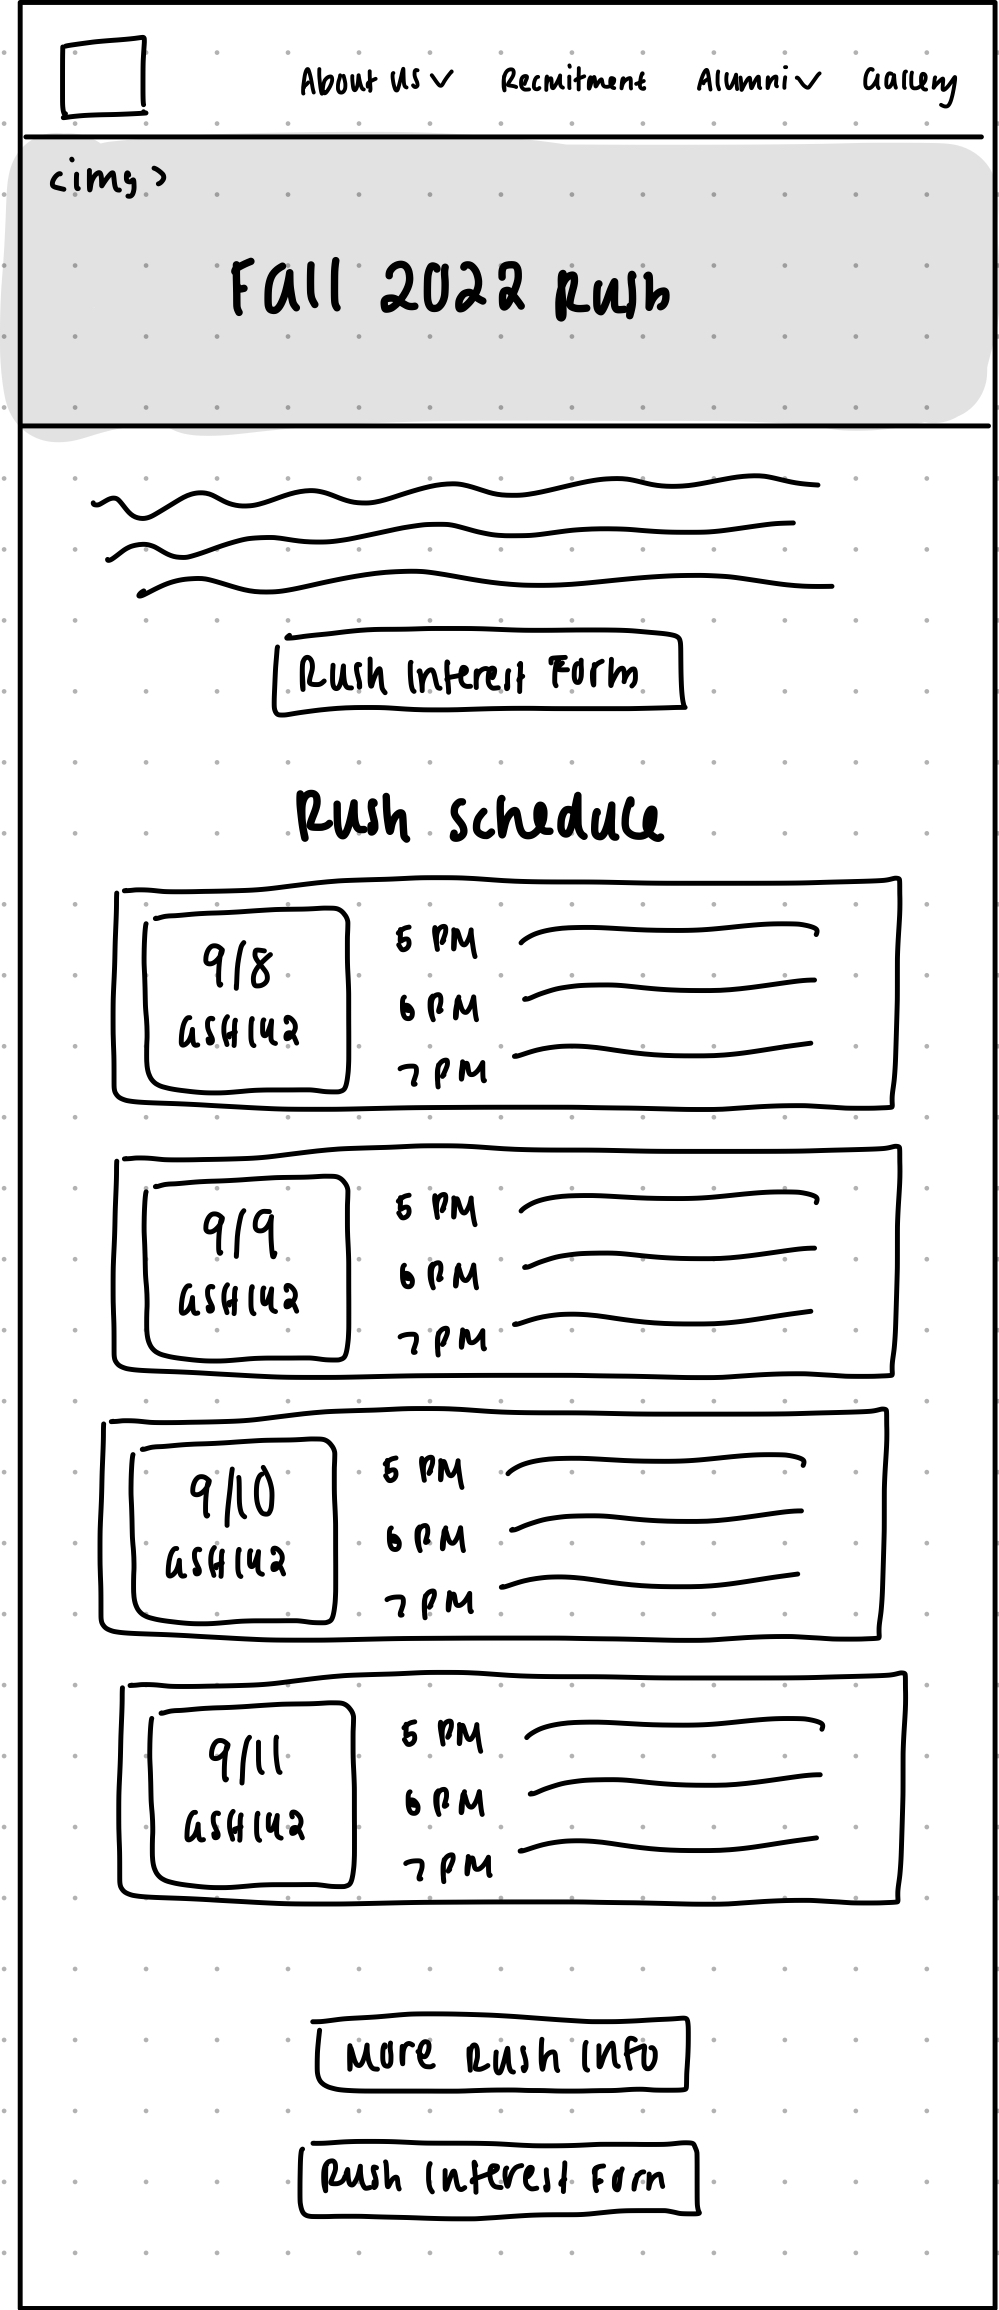 About Us Recruitment Alumni Gallery
<img>
Fall 2022 Rush
Rush Interest Form
Rush Schedule
9/8
ASH142
5 PM
6 PM
7 PM
9/9
ASH142
5 PM
6 PM
7 PM
9/10
ASH142
5 PM
6 PM
7 PM
9/11
ASH142
5 PM
6 PM
7 PM
More Rush Info
Rush Interest Form